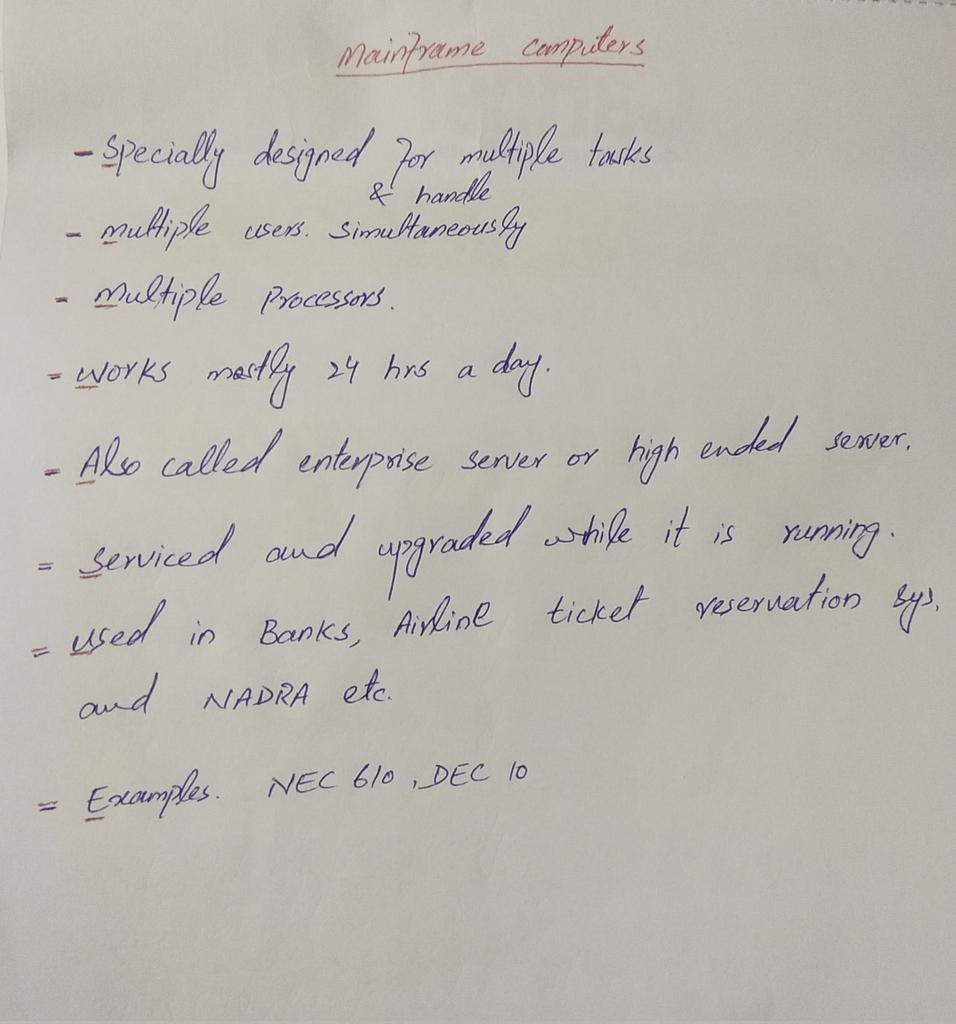 Mainframe Computers
- Specially designed for multiple tasks
& handle
- multiple users. simultaneously
- Multiple Processors.
- works mostly 24 hrs a day.
- Also called enterprise server or high ended server.
= serviced and upgraded while it is running.
= used in Banks, Airline ticket reservation sys.
and NADRA etc.
= Examples. NEC 610, DEC 10